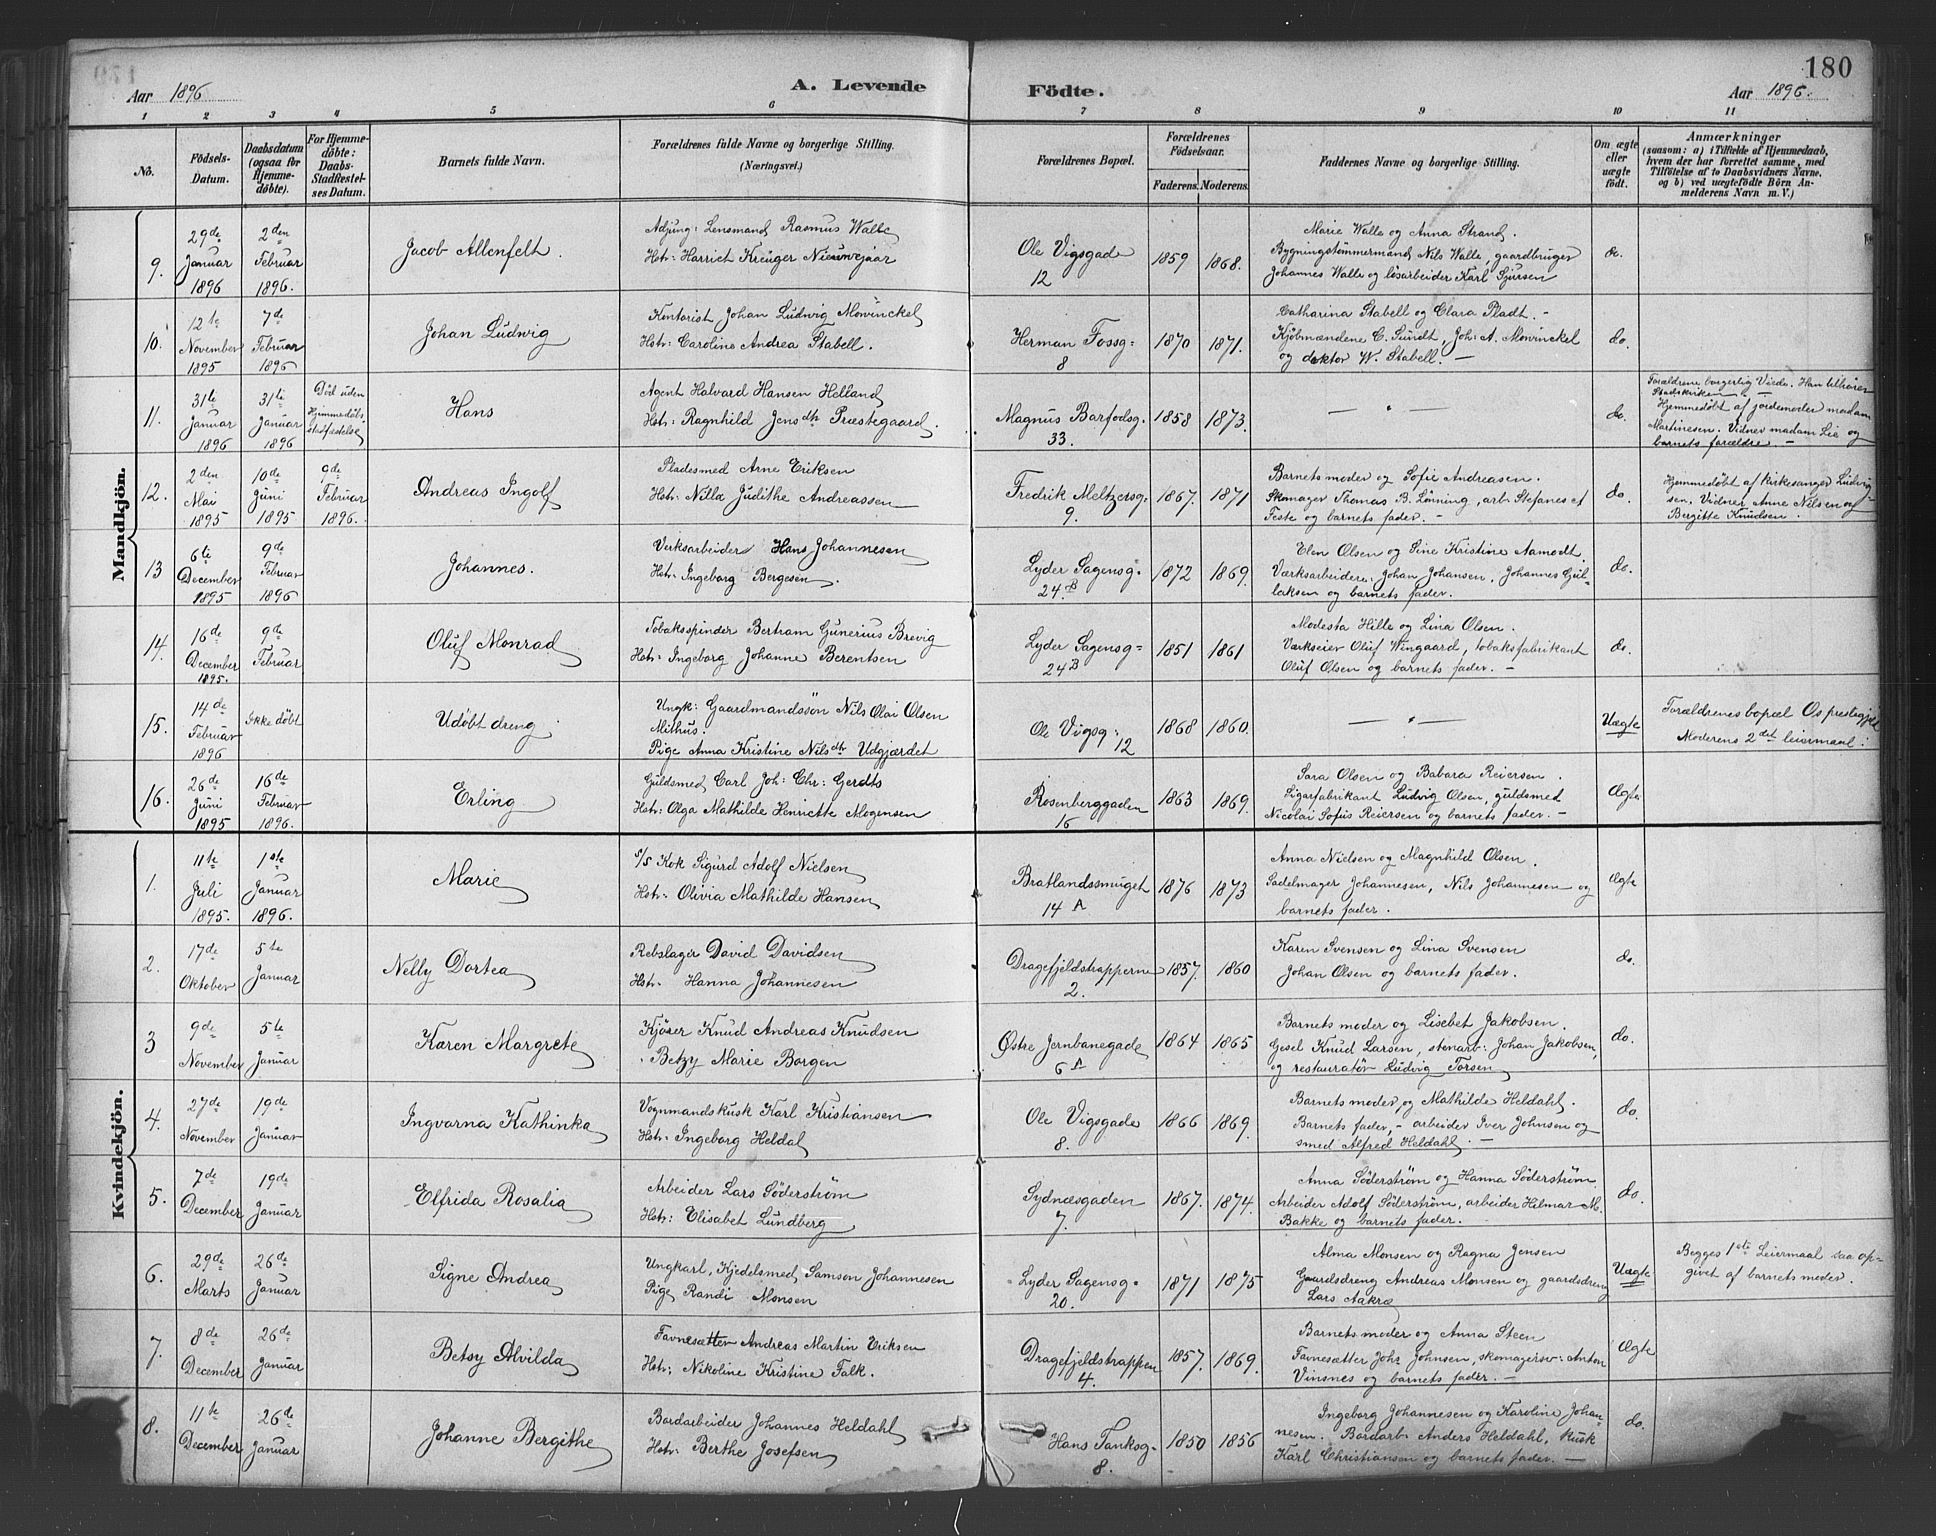 180
Aar 1896
A. Levende Födte.
Aar 1896.
1 2 3 4 5 6 7 8 9 10 11
No.
Födsels-Datum.
Daabsdatum (ogsaa for Hjemme-döbte).
For Hjemme-döbte: Daabs-Stadfæstel-ses Datum.
Barnets fulde Navn.
Forældrenes fulde Navne og borgerlige Stilling.
(Næringsvei.)
Forældrenes Bopæl.
Forældrenes Födselsaar.
Faderens. Moderens.
Faddernes Navne og borgerlige Stilling.
Om ægte eller uægte födt.
Anmærkninger
(saasom: a) i Tilfælde af Hjemmedaab,
hvem der har forrettet samme, med
Tilföielse af to Daabsvidners Navne,
og b) ved uægtefödte Börn An-
melderens Navn m. V.)
Mandkjön.
9. 29de Januar 1896
2den Februar 1896.
Jacob Allenfelt.
Adjung: Lensmand Rasmus Walle
Hstr: Harriet Kreüger Nieuwejaar
Ole Vigsgade
12
1859 1868.
Marie Walle og Anna Strand.
Bygningstömmermand Nils Walle, gaardbruger
Johannes Walle og lösarbeider Karl Sjursen
do.
10. 12te November 1895
7de Februar 1896
Johan Ludwig
Kontorist Johan Ludwig Mowinckel
Hstr: Caroline Andrea Stabell.
Herman Fossg:
8
1870 1871.
Catharina Stabell og Clara Pladt. -
Kjöbmændene C. Sundt, Joh: A. Mowinckel
og doktor W. Stabell. -
do.
11. 31te Januar 1896
31te Januar 1896
Död uden Hjemmedöbs stadfæstelse
Hans
Agent Halvard Hansen Helland
Hst: Ragnhild Jensdtr Præstegaard.
Magnus Barfodsg.
33.
1858 1873.
— " —
do.
Forældrene borgerlig Viede. Han tilhörer
Statskirken. -
Hjemmedöbt af jordemoder madam
Martinesen. Vidner madam Lie og
barnets forældre -
12. 2den Mai 1895
10de Juni 1895
9de Februar 1896.
Andreas Ingolf
Pladesmed Arne Eriksen
Hstr: Nilla Judithe Andreassen
Fredrik Meltzersg:
9.
1867. 1871
Barnets moder og Sofie Andreasen.
Skomager Thomas B. Lönning, arb: Stefanes
Feste og barnets fader. -
do.
Hjemmedöbt af kirkesanger Ludvig-
sen. Vidner Anne Nilsen og
Bergitte Knudsen.
13 6te December 1895
9de Februar 1896
Johannes.
Verksarbeider Hans Johannesen
Hstr: Ingeborg Bergesen.
Lyder Sagensg:
24.B
1872 1869.
Elen Olsen og Sine Kristine Aamodt.
Værksarbeidere Johan Johansen, Johannes Gul-
laksen og barnets fader.
do.
14. 16de December 1895.
9de Februar
Oluf Monrad
Tobaksspinder Bertram Gunerius Brevig
Hstr: Ingeborg Johanne Berentsen
Lyder Sagensg:
24B
1851 1861
Modesta Hille og Lina Olsen.
Værkseier Oluf Wingaard, tobaksfabrikant
Oluf Olsen og barnets fader. -
do.
15. 14de Februar 1896
Ikke döbt
Udöbt dreng
Ungk: Gaardmandssön Nils Olai Olsen
Mithus.
Pige Anna Kristine Nilsdtr Udgjærdet
Ole Vigsg:
12
1868 1860.
— " —
Uægte
Forældrenes bopæl Os prestegjeld
Moderens 2det leiermaal!
16. 26de Juni 1895
16de Februar 1896.
Erling
Guldsmed Carl Joh: Chr: Gerdts
Hstr: Olga Mathilde Henriette Mogensen
Rosenberggaden
16
1863 1869.
Sara Olsen og Babara Reiersen.
Sigarfabrikant Ludvig Olsen, guldsmed
Nicolai Sofus Reiersen og barnets fader. -
Ægte
Kvindekjön.
1. 11te Juli 1895.
1ste Januar 1896.
Marie
S/S Kok Sigurd Adolf Nielsen
Hstr: Olivia Mathilde Hansen
Bratlandssmuget
14 A
1876 1873
Anna Nielsen og Magnhild Olsen.
Sadelmager Johannesen, Nils Johannesen og
barnets fader.
Ægte
2. 17de Oktober
5te Januar
Nelly Dortea
Rebslager David Davidsen
Hstr. Hanna Johannesen
Dragefjeldstrapperne
2.
1857. 1860
Karen Svensen og Lina Svensen
Johan Olsen og barnets fader.
do.
3 9de November
5te Januar
Karen Margrete
Kjörer Knud Andreas Knudsen
" Betzy Marie Borgen
Østre Jernbanegade
6 A
1864 1865
Barnets moder og Lisebet Jakobsen.
Gesel Knud Larsen, stenarb: Johan Jakobsen,
og restauratör Ludvig Torsen
do.
4. 27de November
19de Januar
Ingvarna Kathinka
Vognmandskusk Karl Kristiansen
Hstr: Ingeborg Heldal
Ole Vigsgade
8.
1866 1869.
Barnets moder, og Mathilde Heldahl.
Barnets fader, - arbeider Iver Johnsen og
smed Alfred Heldahl. -
do.
5. 7de December
19de Januar
Elfrida Rosalia
Arbeider Lars Söderström
Hstr: Elisabet Lundberg
Sydnæsgaden
7.
1867. 1874.
Anna Söderström og Hanna Söderström.
Arbeider Adolf Söderström, arbeider Hilmar M.
Bakke og barnets fader.
do.
6. 29de Marts
26de Januar
Signe Andrea
Ungkarl, Kjedelsmed Samson Johannesen
Pige Randi Monsen
Lyder Sagensg:
20.
1871 1875
Alma Monsen og Ragna Jensen
Gaardsdreng Andreas Monsen og gaardsdreng
Lars Aakre
Uægte
Begges 1ste Leiermaal saa op-
givet af barnets moder.
7. 8de December
26de Januar
Betsy Alvilda
Favnesætter Andreas Martin Eriksen
Hstr: Nikoline Kristine Falk.
Dragefjeldstrappen
4.
1857. 1869.
Barnets moder og Anna Steen
Favnesætter Johs Johnsen, skomagersv: Anton
Vinsnes og barnets fader. -
Ægte
8. 11te December
26de Januar
Johanne Bergithe
Bordarbeider Johannes Heldahl
Hstr: Berthe Josefsen
Hans Tanksg:
8.
1850 1856
Ingeborg Johannesen og Karoline Johan-
nesen. Bordarb: Anders Heldahl, Kusk
Karl Christiansen og barnets fader. -
do.